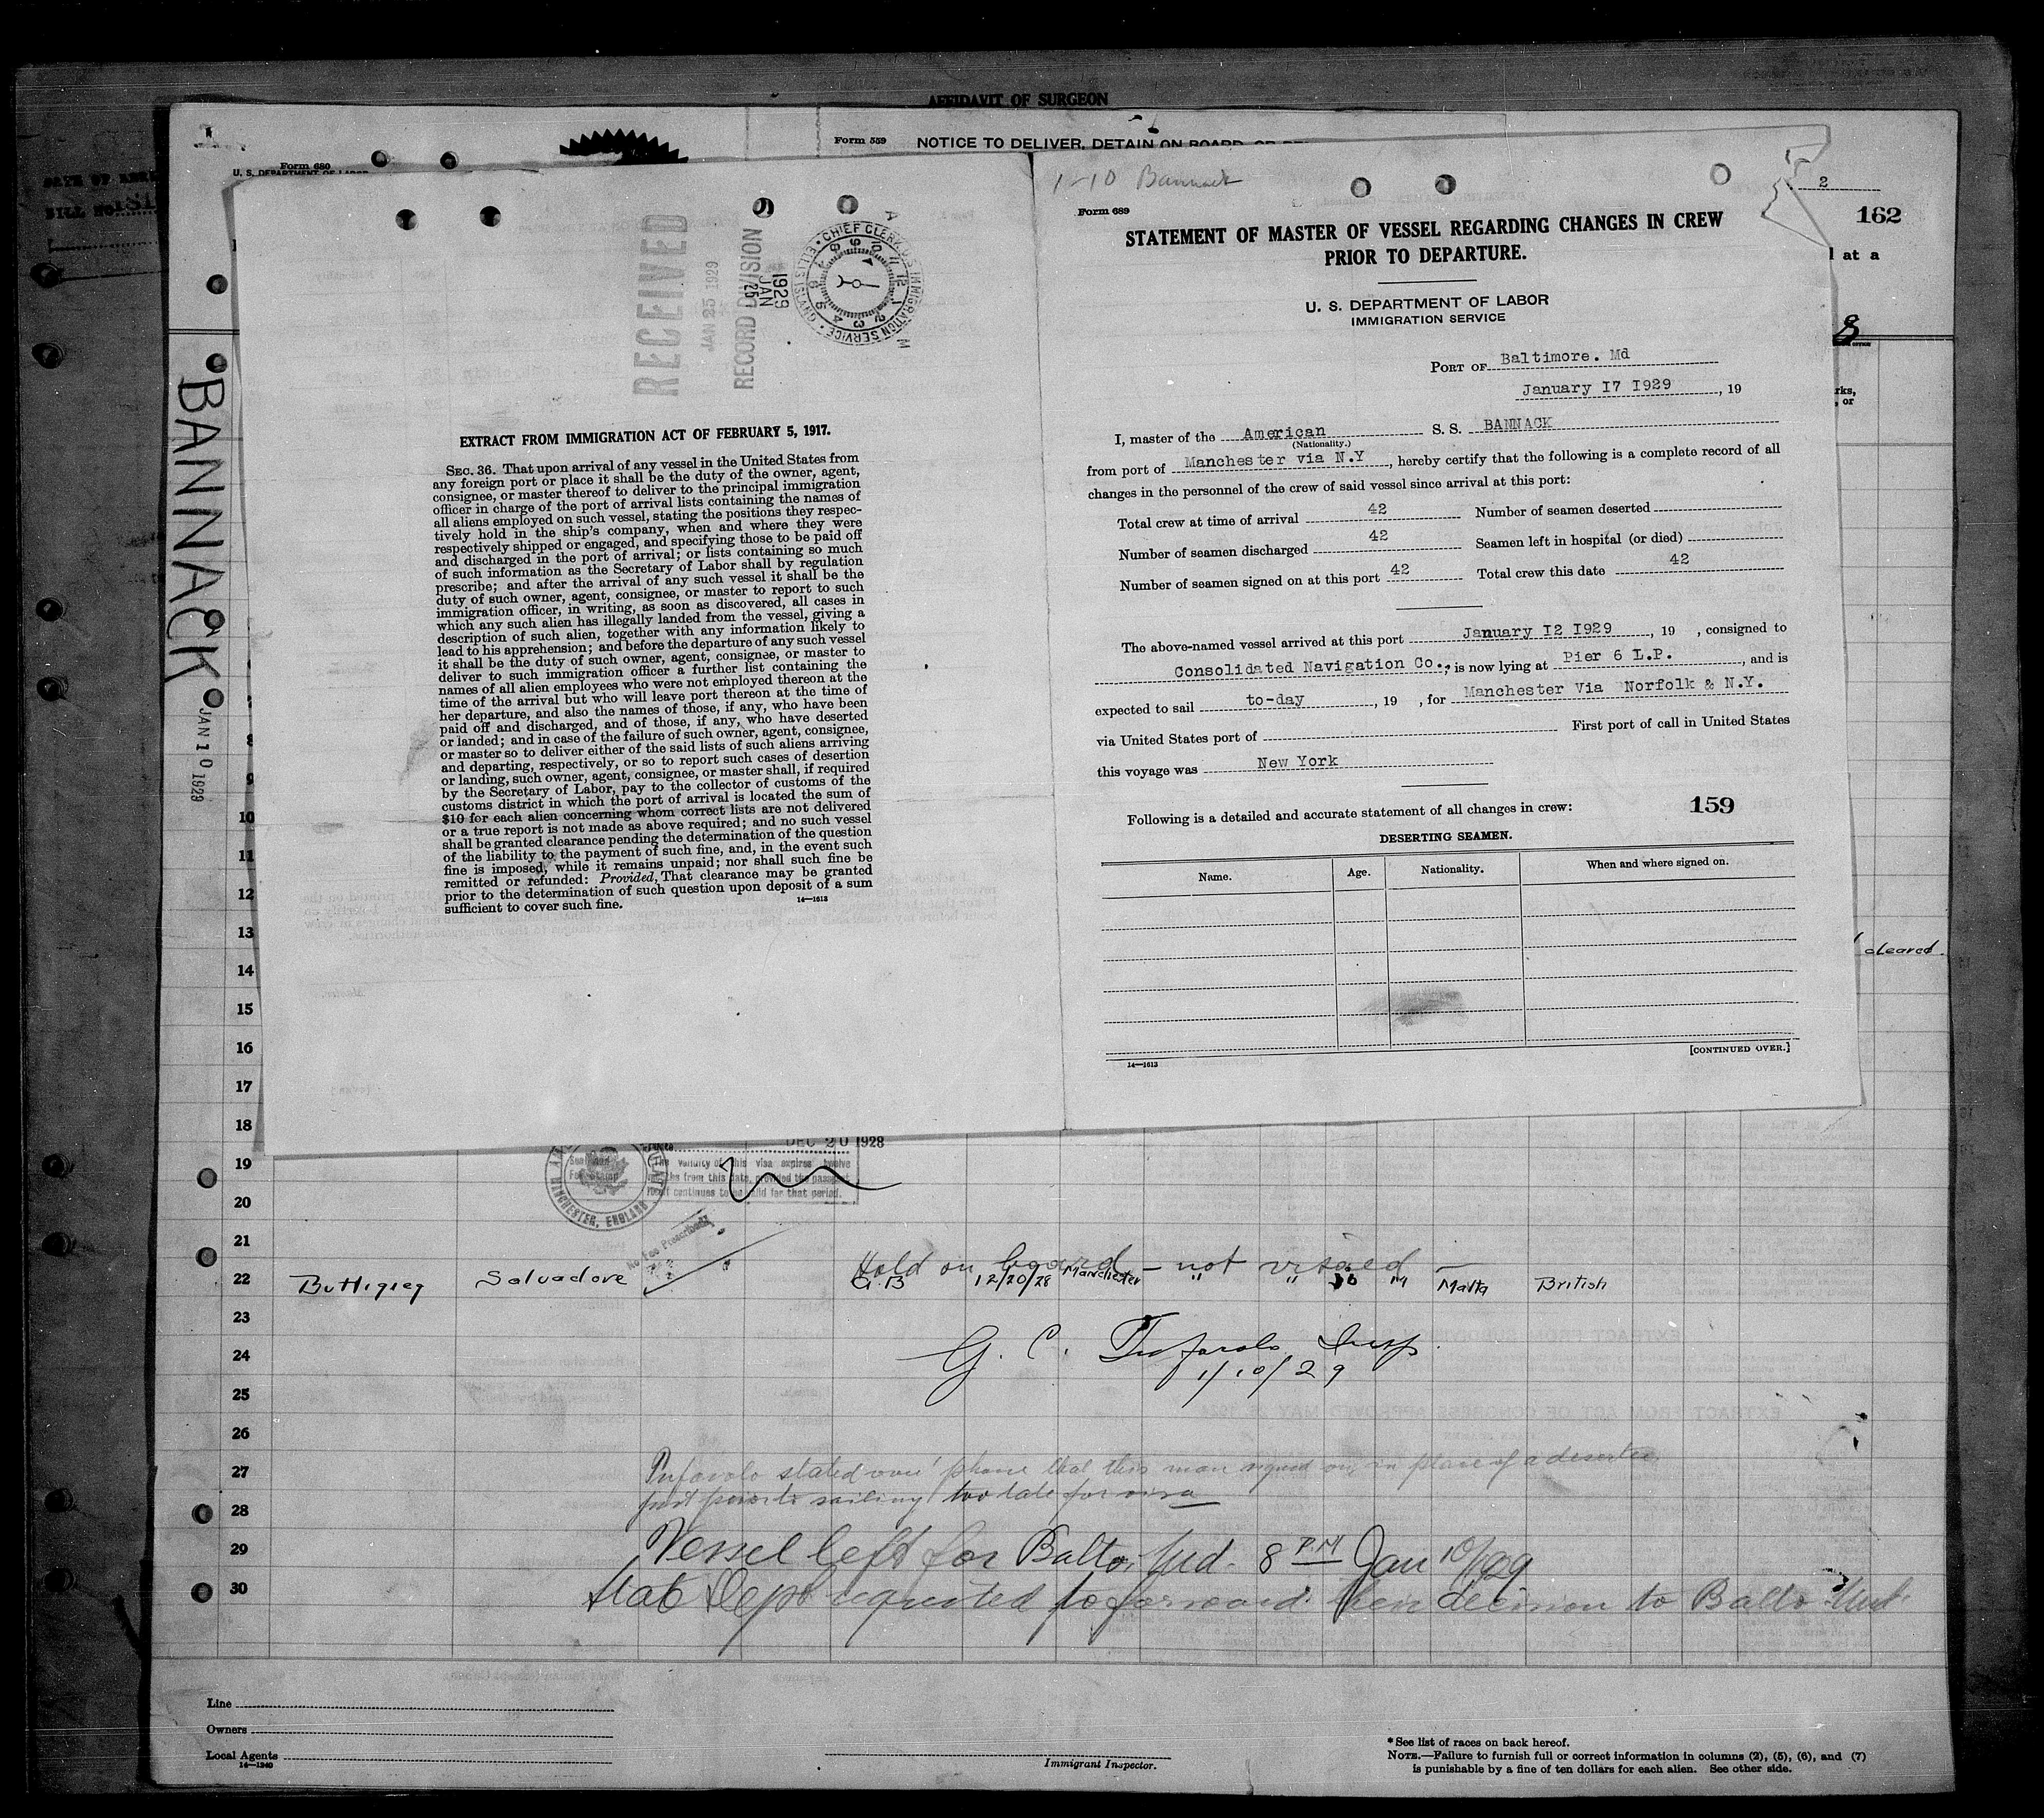 AFFIDAVIT OF SURGEON
Form 559 NOTICE TO DELIVER, DETAIN ON BOARD, OR
Form 680
U. S. DEPARTMENT OF LABOR
BILL NO.
2
162
l at a
8
rks,
, or
cleared
BANNACK
JAN 10 1929
RECEIVED
JAN 25 1929
RECORD DIVISION
1929
JAN
25
CHIEF CLERK, U.S. IMMIGRATION SERVICE • ELLIS ISLAND •
EXTRACT FROM IMMIGRATION ACT OF FEBRUARY 5, 1917.
SEC. 36. That upon arrival of any vessel in the United States from
any foreign port or place it shall be the duty of the owner, agent,
consignee, or master thereof to deliver to the principal immigration
officer in charge of the port of arrival lists containing the names of
all aliens employed on such vessel, stating the positions they respec-
tively hold in the ship's company, when and where they were
respectively shipped or engaged, and specifying those to be paid off
and discharged in the port of arrival; or lists containing so much
of such information as the Secretary of Labor shall by regulation
prescribe; and after the arrival of any such vessel it shall be the
duty of such owner, agent, consignee, or master to report to such
immigration officer, in writing, as soon as discovered, all cases in
which any such alien has illegally landed from the vessel, giving a
description of such alien, together with any information likely to
lead to his apprehension; and before the departure of any such vessel
it shall be the duty of such owner, agent, consignee, or master to
deliver to such immigration officer a further list containing the
names of all alien employees who were not employed thereon at the
time of the arrival but who will leave port thereon at the time of
her departure, and also the names of those, if any, who have been
paid off and discharged, and of those, if any, who have deserted
or landed; and in case of the failure of such owner, agent, consignee,
or master so to deliver either of the said lists of such aliens arriving
and departing, respectively, or so to report such cases of desertion
or landing, such owner, agent, consignee, or master shall, if required
by the Secretary of Labor, pay to the collector of customs of the
customs district in which the port of arrival is located the sum of
$10 for each alien concerning whom correct lists are not delivered
or a true report is not made as above required; and no such vessel
shall be granted clearance pending the determination of the question
of the liability to the payment of such fine, and, in the event such
fine is imposed, while it remains unpaid; nor shall such fine be
remitted or refunded: Provided, That clearance may be granted
prior to the determination of such question upon deposit of a sum
sufficient to cover such fine.
14—1613
1-10 Bannack
Form 689
STATEMENT OF MASTER OF VESSEL REGARDING CHANGES IN CREW
PRIOR TO DEPARTURE.
U. S. DEPARTMENT OF LABOR
IMMIGRATION SERVICE
PORT OF Baltimore. Md
January I7 I929, 19
I, master of the American S. S. BANNACK
(Nationality.)
from port of Manchester via N.Y, hereby certify that the following is a complete record of all
changes in the personnel of the crew of said vessel since arrival at this port:
Total crew at time of arrival 42 Number of seamen deserted
Number of seamen discharged 42 Seamen left in hospital (or died)
Number of seamen signed on at this port 42 Total crew this date 42
The above-named vessel arrived at this port January I2 I929, 19 , consigned to
Consolidated Navigation Co., is now lying at Pier 6 L.P., and is
expected to sail to-day, 19 , for Manchester Via Norfolk & N.Y.
via United States port of First port of call in United States
this voyage was New York
Following is a detailed and accurate statement of all changes in crew: 159
DESERTING SEAMEN.
Name. Age. Nationality. When and where signed on.
[CONTINUED OVER.]
14—1613
8
9
10
11
12
13
14
15
16
17
18
DEC 20 1928
19
The validity of this visa expires twelve
months from this date, provided the passport
continues to be valid for that period.
MANCHESTER, ENGLAND
No Fee Prescribed
20
21
Hold on board – not visaed –
22 Buttigieg Salvadore G.B 12/20/28 Manchester " " 36 M Malta British
23
24 G. C. Insp.
1/10/29
25
26
27 stated over phone that this man signed on in place of a deserter
just prior to sailing too late for visa
28
29 Vessel left for Balto, Md. 8 P.M Jan 10/1929
30 Stat Dept requested to forward their decision to Balto Md.
Line
Owners
Local Agents
14—1240
Immigrant Inspector.
* See list of races on back hereof.
NOTE.—Failure to furnish full or correct information in columns (2), (5), (6), and (7)
is punishable by a fine of ten dollars for each alien. See other side.